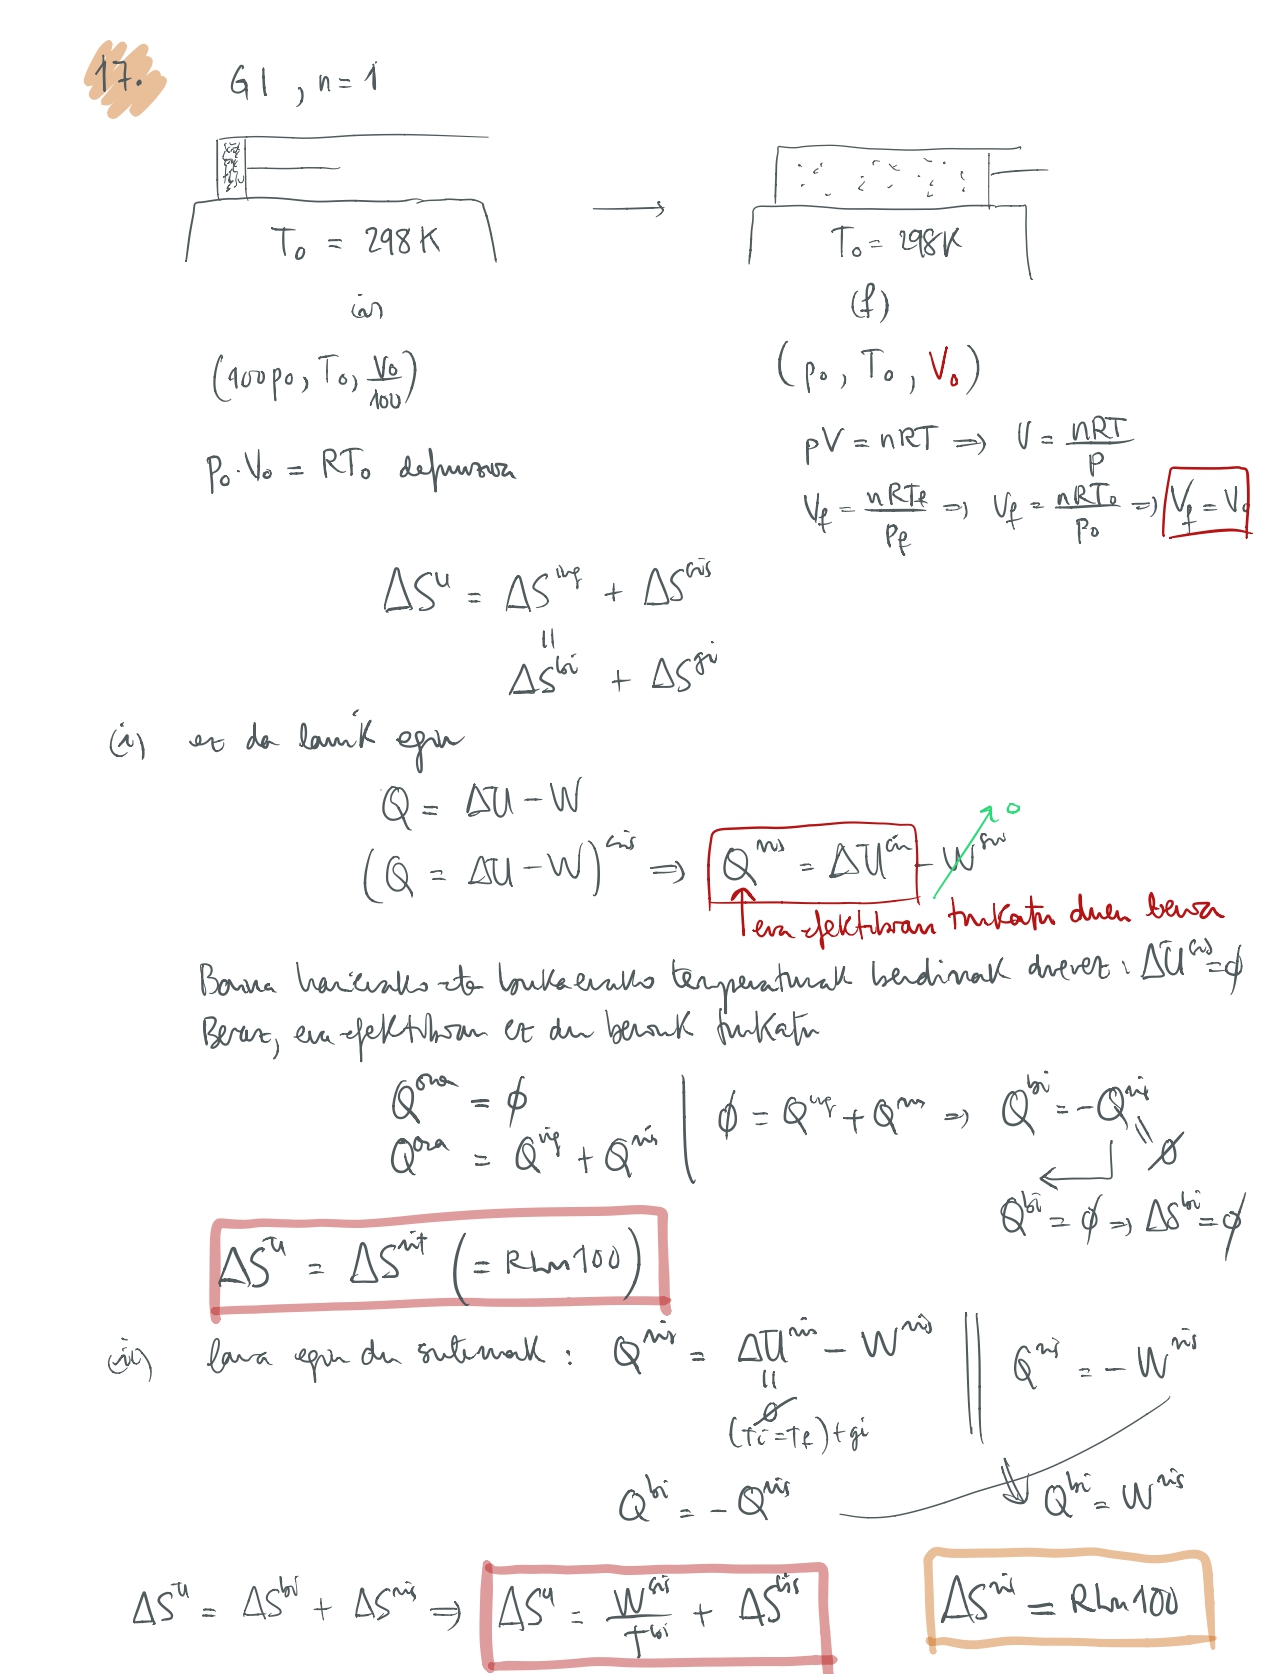 17.
GI , n = 1
T₀ = 298 K
T₀ = 298 K
(i)
(f)
(100p₀, T₀, V₀/100)
(p₀, T₀, V₀)
pV = nRT ⇒ V = nRT/p
p₀·V₀ = RT₀
V_f = nRT_f/p_f ⇒ V_f = nRT₀/p₀ ⇒ V_f = V₀
ΔSᵘ = ΔSⁱⁿᵍ + ΔSˢⁱˢ
||
ΔSᵇⁱ + ΔSᵍⁱ
(i) ez da lanik egin
Q = ΔU - W
(Q = ΔU - W)ˢⁱˢ ⇒ Qˢⁱˢ = ΔUˢⁱˢ - Wˢⁱˢ 0
era efektiboan trukatu duen beroa
Baina hasierako eta bukaerako temperaturak berdinak direnez : ΔUˢⁱˢ = ∅
Beraz, era efektiboan ez du berorik trukatu
Qᵒˢᵒᵃ = ∅
∅ = Qⁱⁿᵍ + Qˢⁱˢ ⇒ Qᵇⁱ = -Qˢⁱˢ
Qᵒˢᵒᵃ = Qⁱⁿᵍ + Qˢⁱˢ
|| ∅
Qᵇⁱ = ∅ ⇒ ΔSᵇⁱ = ∅
ΔSᵘ = ΔSˢⁱˢᵗ (= R Ln 100)
(ii) lana egin du sistemak : Qˢⁱˢ = ΔUˢⁱˢ - Wˢⁱˢ
Qˢⁱˢ = - Wˢⁱˢ
||
∅
(Ti = Tf) + gi
Qᵇⁱ = - Qˢⁱˢ
⇓ Qᵇⁱ = Wˢⁱˢ
ΔSᵘ = ΔSᵇⁱ + ΔSˢⁱˢ ⇒ ΔSᵘ = Wˢⁱˢ/Tᵇⁱ + ΔSˢⁱˢ
ΔSˢⁱˢ = R Ln 100